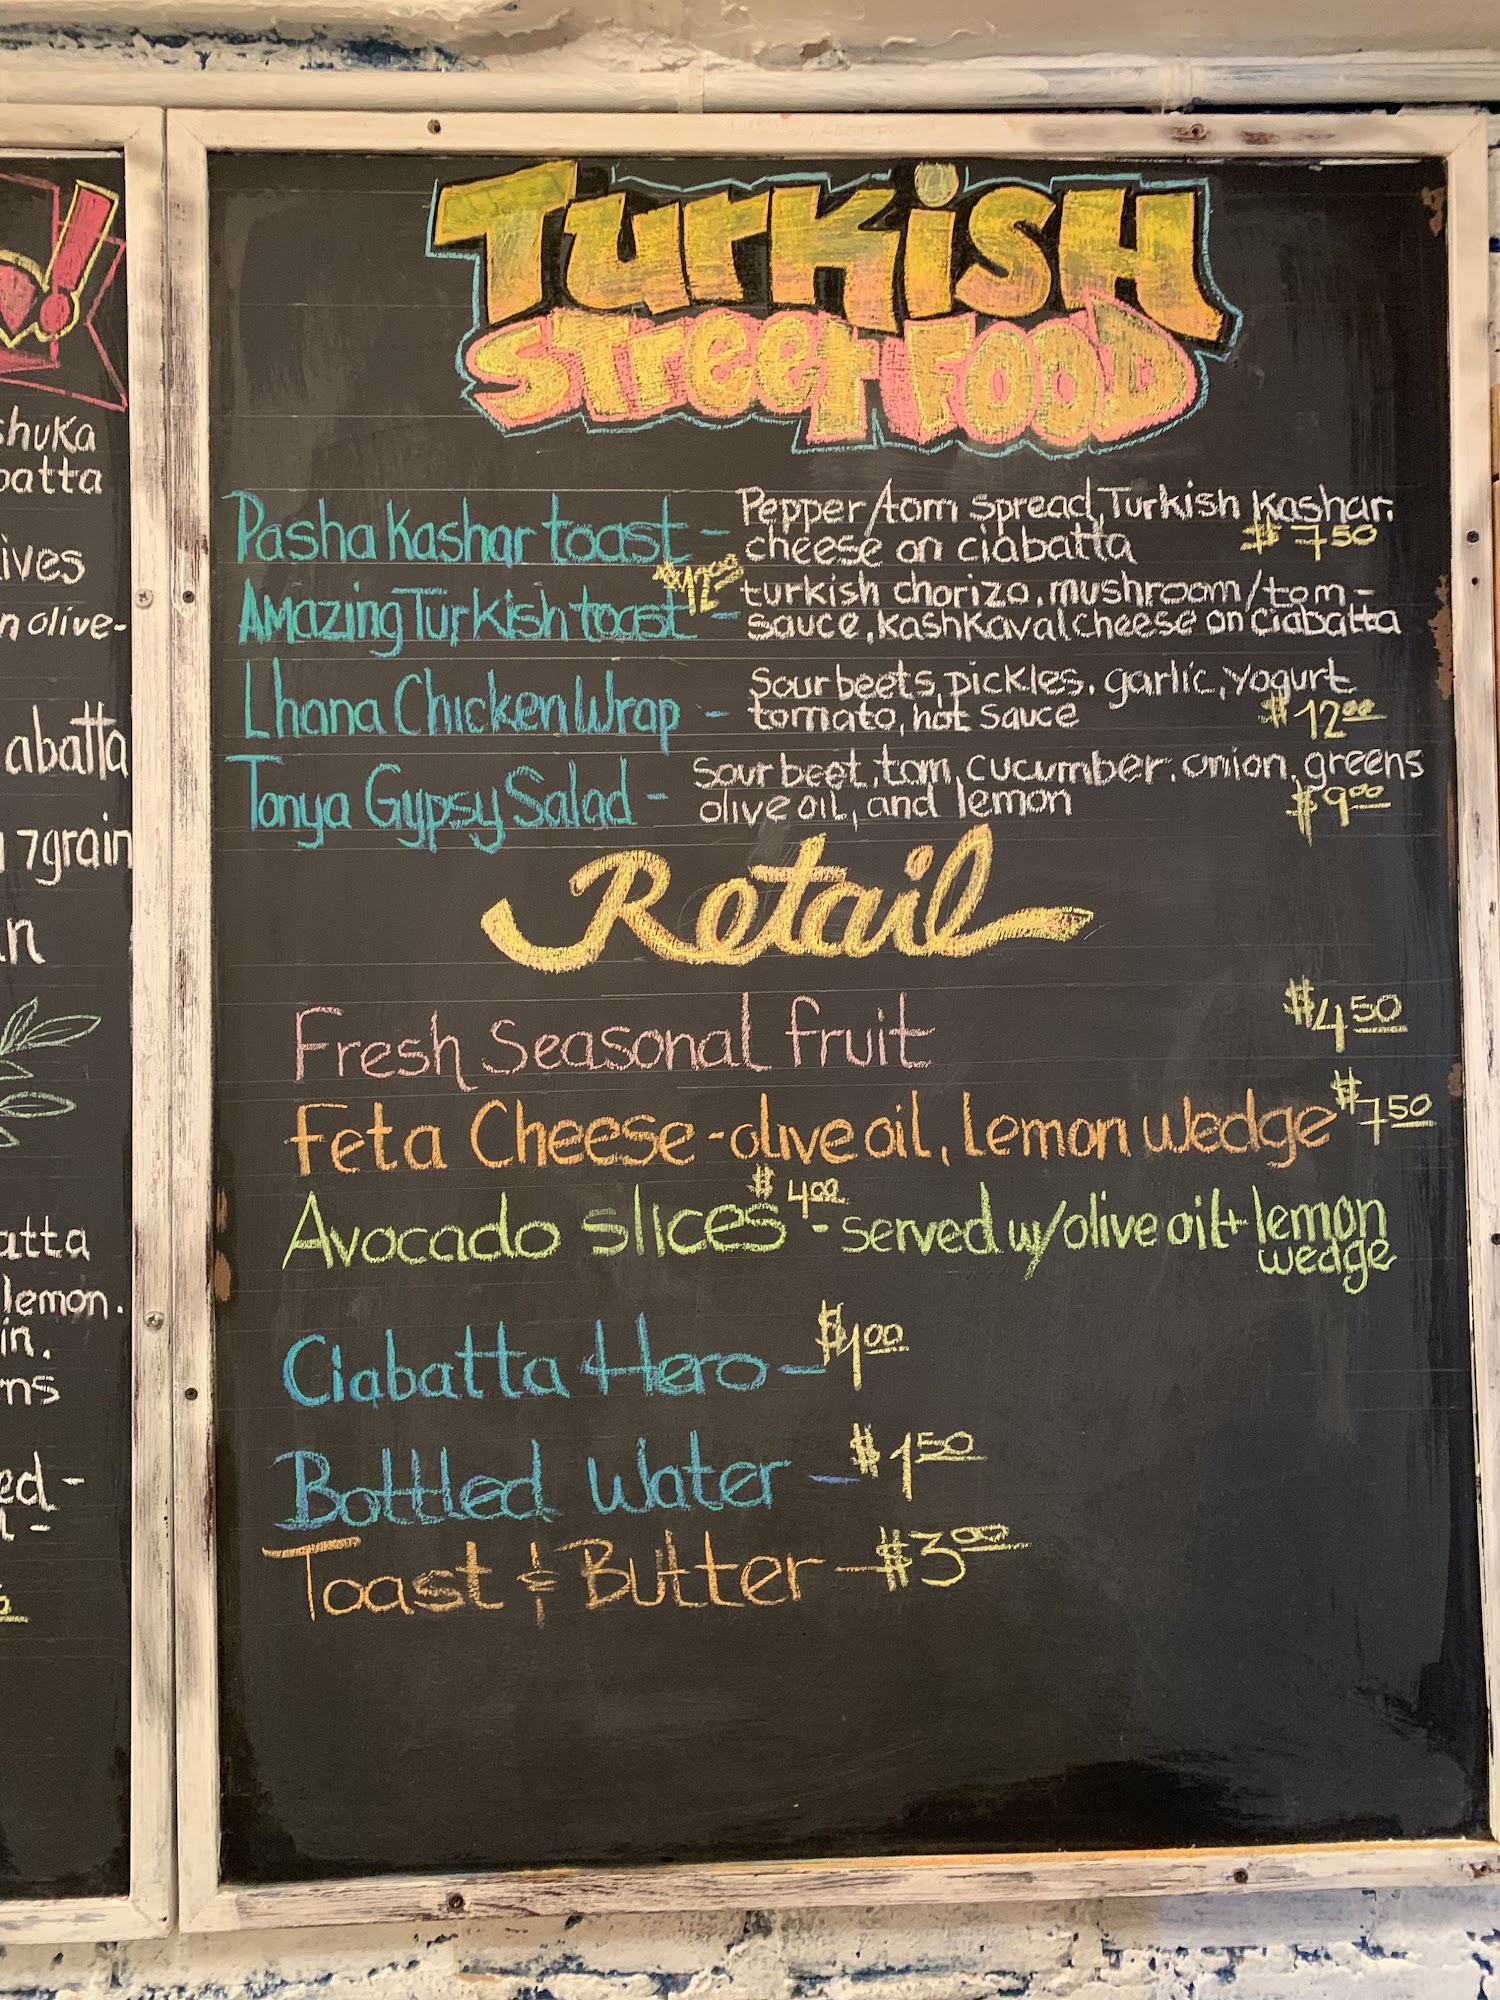 shuka
batta
ives
n olive-
abatta
7grain
n
atta
lemon.
in.
ns
ed -
Turkish
Street Food
Pasha Kashar toast - Pepper/tom spread, Turkish Kashar.
cheese on ciabatta $7.50
Amazing Turkish toast - $12.00 turkish chorizo, mushroom/tom-
sauce, Kashkaval cheese on Ciabatta
Lhana Chicken Wrap - Sour beets, pickles, garlic, yogurt
tomato, hot sauce $12.00
Tonya Gypsy Salad - Sour beet, tom, cucumber, onion, greens
olive oil, and lemon $9.00
Retail
Fresh Seasonal fruit $4.50
Feta Cheese - olive oil, lemon wedge $7.50
Avocado slices $4.00 - served w/ olive oil + lemon
wedge
Ciabatta Hero - $1.00
Bottled Water - $1.50
Toast & Butter - $3.00